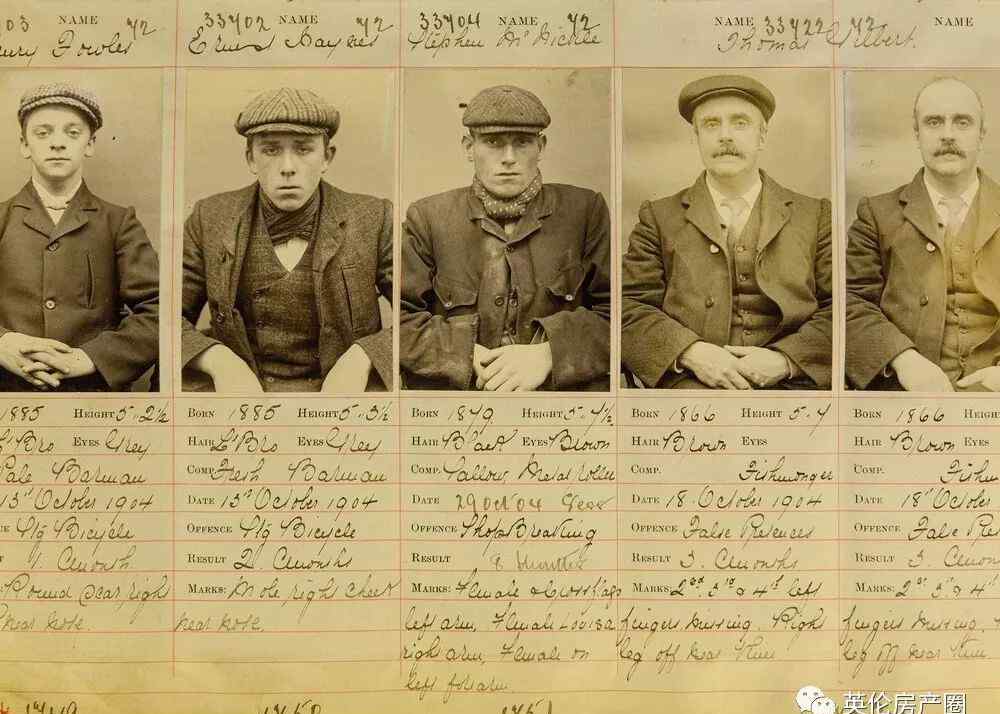 03 NAME 72
33702 NAME 72
33704 NAME 72
NAME 33722 72
NAME
Fowles
Stephen
Thomas Gilbert.
1885 HEIGHT 5.. 2½
L'Bro EYES Grey
Pale Barman
13" October 1904
Stg Bicycle
1. Cmonth
Round scar right
near nose
BORN 1885 HEIGHT 5.. 3½
HAIR L'Bro EYES Grey
COMP. Fresh Barman
DATE 13" October 1904
OFFENCE Stg Bicycle
RESULT 2. Cmonths
MARKS: Mole right cheek
near nose.
BORN HEIGHT
HAIR Black EYES Brown
COMP. Sallow, Metal roller
DATE 29 Oct 04
OFFENCE Shop Breaking
RESULT 8 months
MARKS: Female & cross flags
left arm, Female Louisa
right arm, Female on
left forearm.
BORN 1866 HEIGHT 5.. 4
HAIR Brown EYES
COMP. Fishmonger
DATE 18 October 1904
OFFENCE False Pretences
RESULT 3. Cmonths
MARKS: 2nd 3rd & 4th left
fingers missing. Right
leg off near knee
BORN 1866 HEIGHT
HAIR Brown EYES
COMP.
DATE 18" October
OFFENCE False
RESULT 3.
MARKS:
fingers missing.
leg off near knee
英伦房产圈